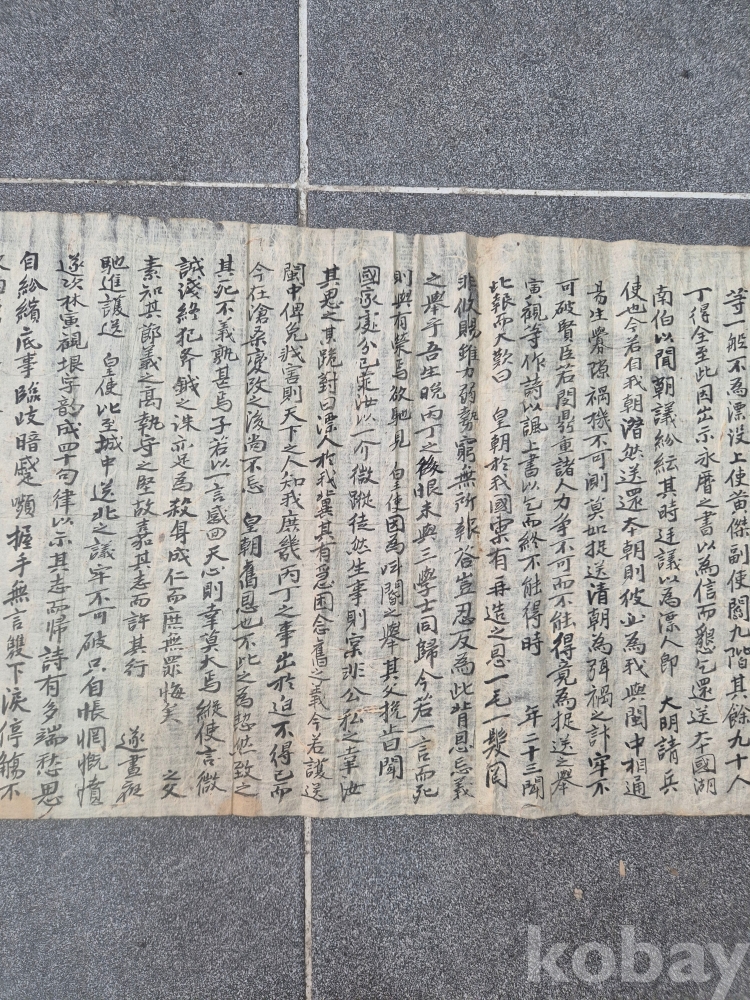 等一般不為漂没上使黃傑副使閣九階其餘九十八
丁得全至此因出示永曆之書以為信而懇乞還送本國湖
南伯以聞朝議紛紜其時廷議以為漂人即 大明請兵
使也今若自我朝潛然送還本朝則彼必為我與閩中相通
易生釁隙禍機不可則莫如捉送清朝為弭禍之計牢不
可破賢臣若閔鼎重諸人力爭不可而不能得竟為捉送之舉
寅觀等作詩以諷上書以乞而終不能得時 年二十三聞
此報而大歎曰 皇朝於我國實有再造之恩一毛一髮罔
非攸賜雖力弱勢窮無所報答豈忍反為此背恩忘義
之舉乎吾生晚丙丁之後恨未與三學士同歸今若一言而死
則與有榮焉欲馳見 皇使因為叫閽之舉其父挽止曰聞
國家處分已定汝以一介微蹤徒然生事則實非公私之幸汝
其思之其跪對曰漂人於我冀其有急困念舊之義今若護送
閩中俾免戕害則天下之人知我庶幾丙丁之事出於迫不得已而
今在滄桑變改之後尚不忘 皇朝舊恩也不此之為恝然致之
其死不義孰甚焉子若以一言感回天心則幸莫大焉縱使言微
誠淺終犯斧鉞之誅亦足為殺身成仁而庶無罪悔矣 之父
素知其節義之高執守之堅故嘉其志而許其行 遂晝夜
馳進護送 皇使比至城中送北之議牢不可破只自悵惘慨憤
遂次林寅觀垠字韵成四十句律以示其志而歸詩有多端愁思
自紛繽底事臨歧暗蹙嚬握手無言雙下淚停觴不
kobay